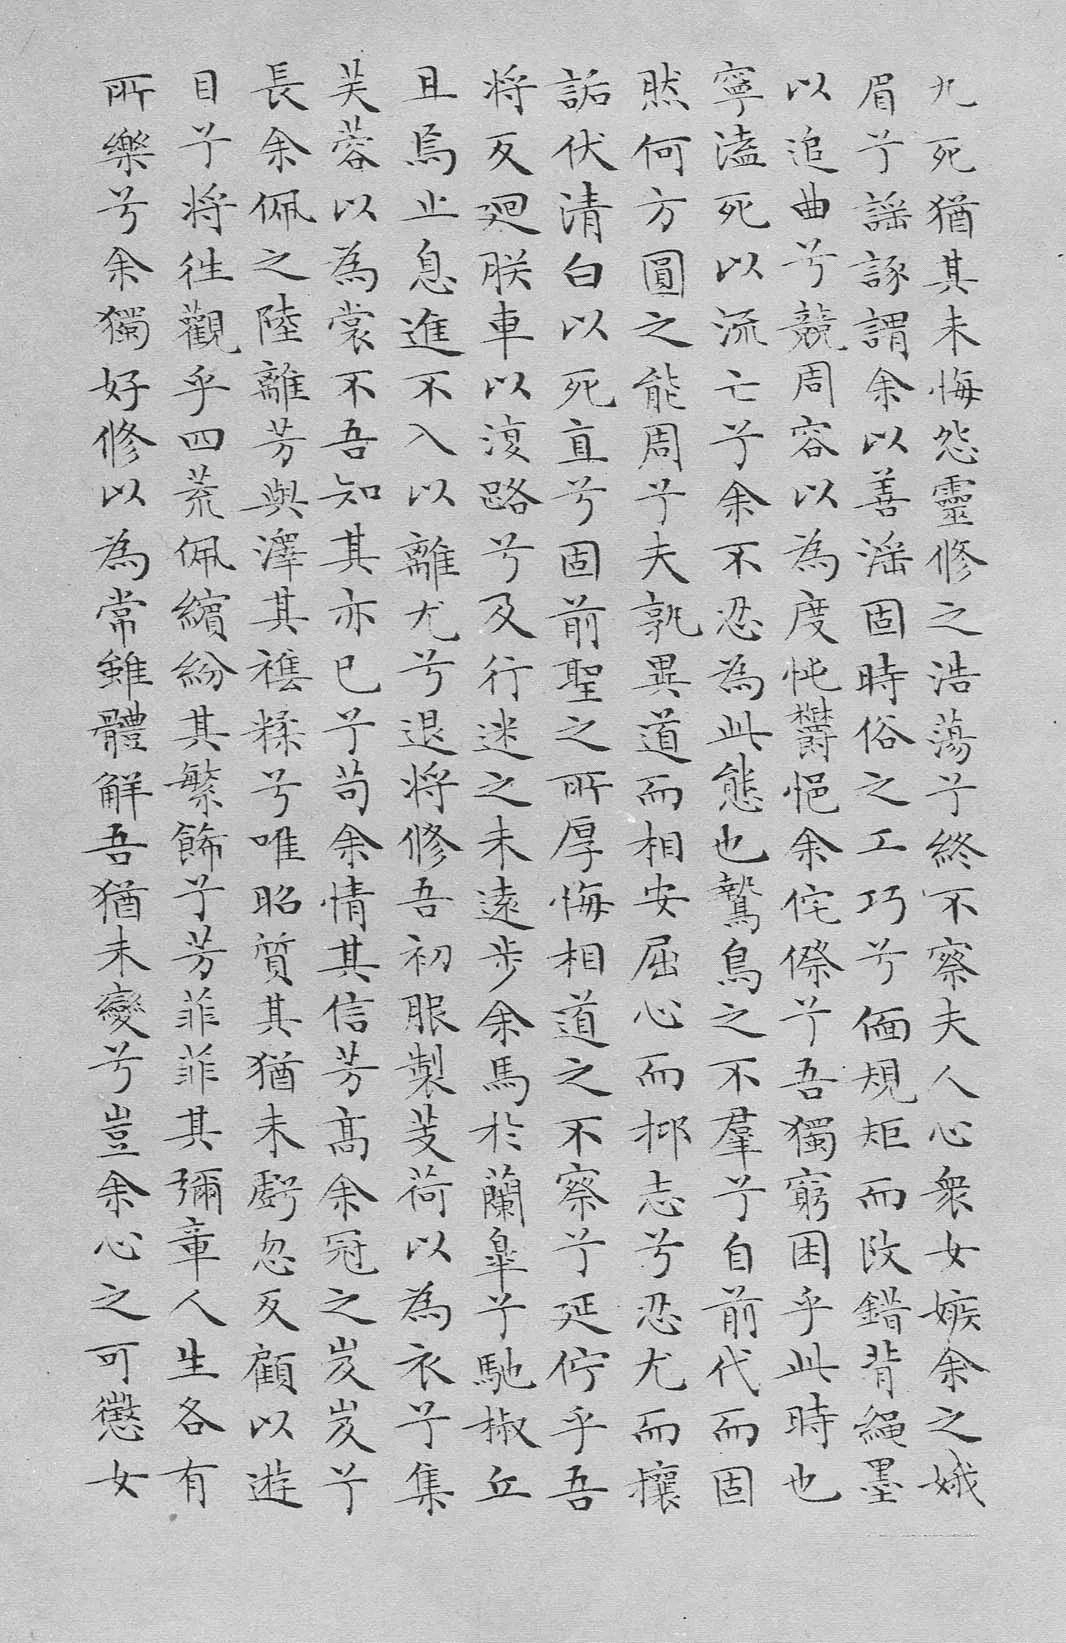 九死猶其未悔怨靈修之浩蕩兮終不察夫人心衆女嫉余之娥
眉兮謡諑謂余以善滛固時俗之工巧兮偭規矩而改錯背繩墨
以追曲兮競周容以為度忳欝悒余侘傺兮吾獨窮困乎此時也
寧溘死以流亡兮余不忍為此態也鷙鳥之不羣兮自前代而固
然何方圓之能周兮夫孰異道而相安屈心而抑志兮忍尤而攘
詬伏清白以死直兮固前聖之所厚悔相道之不察兮延佇乎吾
将反廻朕車以復路兮及行迷之未遠步余馬於蘭臯兮馳椒丘
且焉止息進不入以離尤兮退将修吾初服製芰荷以為衣兮集
芙蓉以為裳不吾知其亦已兮苟余情其信芳髙余冠之岌岌兮
長余佩之陸離芳與澤其襍糅兮唯昭質其猶未虧忽反顧以遊
目兮将往觀乎四荒佩繽紛其繁飾兮芳菲菲其彌章人生各有
所樂兮余獨好修以為常雖體解吾猶未變兮豈余心之可懲女